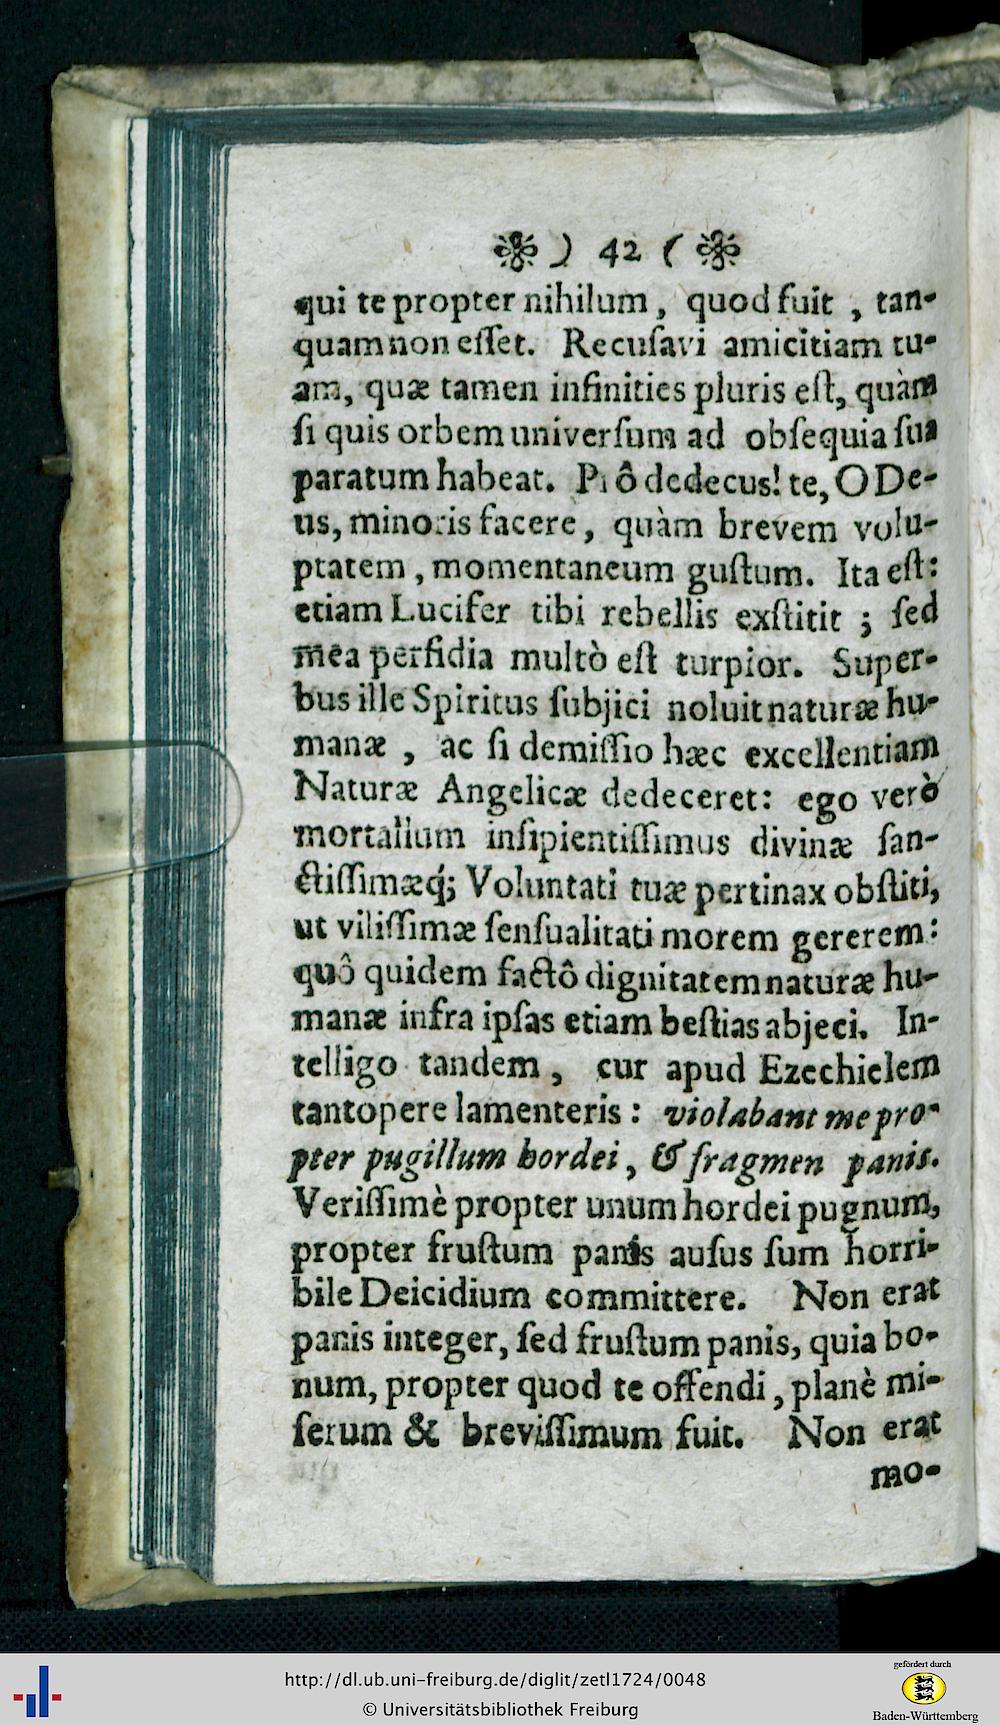 ) 42 (
qui te propter nihilum, quod fuit, tan-
quam non eſſet. Recuſavi amicitiam tu-
am, quæ tamen infinities pluris eſt, quàm
ſi quis orbem univerſum ad obſequia ſua
paratum habeat. Prô dedecus! te, O De-
us, minoris facere, quàm brevem volu-
ptatem, momentaneum guſtum. Ita eſt:
etiam Lucifer tibi rebellis exſtitit; ſed
mea perfidia multò eſt turpior. Super-
bus ille Spiritus ſubjici noluit naturæ hu-
manæ, ac ſi demiſſio hæc excellentiam
Naturæ Angelicæ dedeceret: ego verò
mortalium inſipientiſſimus divinæ ſan-
ctiſſimæq́; Voluntati tuæ pertinax obſtiti,
ut viliſſimæ ſenſualitati morem gererem:
quô quidem factô dignitatem naturæ hu-
manæ infra ipſas etiam beſtias abjeci. In-
telligo tandem, cur apud Ezechielem
tantopere lamenteris: violabant me pro-
pter pugillum hordei, & fragmen panis.
Veriſſimè propter unum hordei pugnum,
propter fruſtum panis auſus ſum horri-
bile Deicidium committere. Non erat
panis integer, ſed fruſtum panis, quia bo-
num, propter quod te offendi, planè mi-
ſerum & breviſſimum fuit. Non erat
mo-
http://dl.ub.uni-freiburg.de/diglit/zetl1724/0048
© Universitätsbibliothek Freiburg
gefördert durch
Baden-Württemberg